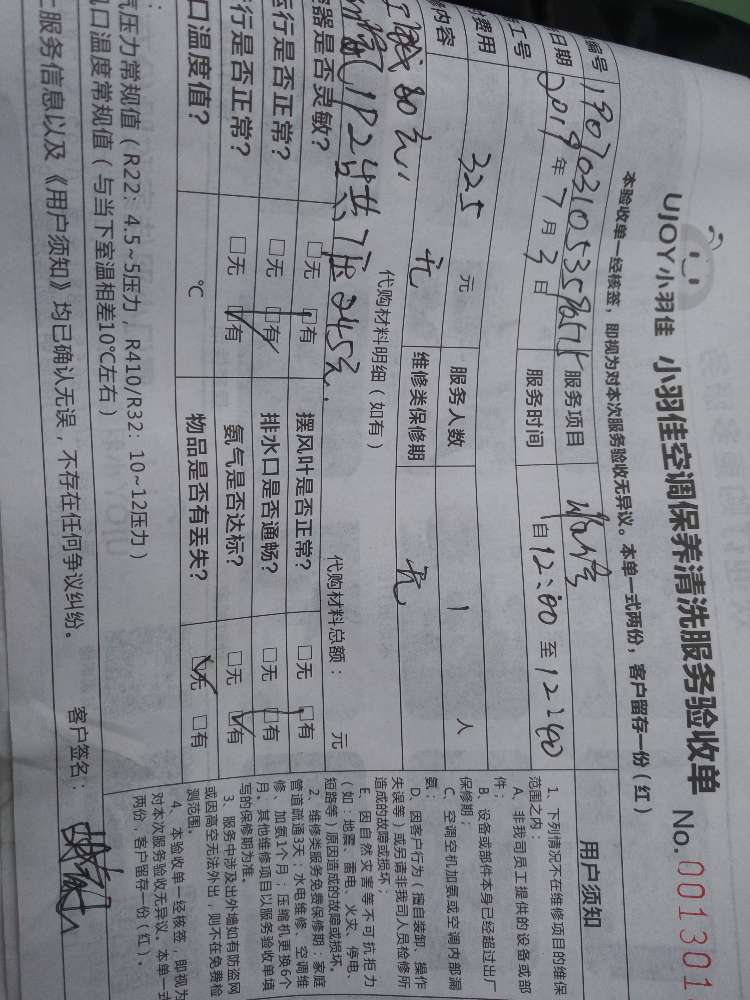 UJOY小羽佳 小羽佳空调保养清洗服务验收单 No.001301
本验收单一经核签，即视为对本次服务验收无异议。本单一式两份，客户留存一份（红）
编号
服务项目
用户须知
日期 2019年7月3日 服务时间 自12:00至12:40
工号
费用 325 元 服务人数 1 人
内容 无 维修类保修期 无
80元，
代购材料明细（如有） 代购材料总额： 元
245元.
器是否灵敏？ □无 □有 摆风叶是否正常？ □无 □有
运行是否正常？ □无 □有 排水口是否通畅？ □无 □有
行是否正常？ □无 □有 氨气是否达标？ □无 □有
口温度值？ ℃ 物品是否有丢失？ □无 □有
气压力常规值（R22：4.5~5压力，R410/R32：10~12压力）
口温度常规值（与当下室温相差10℃左右）
上服务信息以及《用户须知》均已确认无误，不存在任何争议纠纷。 客户签名：
1、下列情况不在维修项目的维保
范围之内：
A、非我司员工提供的设备或部
件；
B、设备或部件本身已经超过出厂
保修期；
C、空调空机加氨或空调内部漏
氨；
D、因客户行为（擅自装卸、操作
失误等）或另请非我司人员检修所
造成的故障或损坏；
E、因自然灾害等不可抗拒力
（如：地震、雷电、火灾、停电、
短路等）原因造成的故障或损坏。
2、维修类服务免费保修期：家庭
管道疏通3天；水电维修、空调维
修、加氨1个月；压缩机更换6个
月。其他维修项目以服务验收单填
写的保修期为准。
3、服务中涉及出外墙如有防盗网
或因高空无法外出，则不在免费检
测范围。
4、本验收单一经核签，即视为
对本次服务验收无异议。本单一式
两份，客户留存一份（红）。